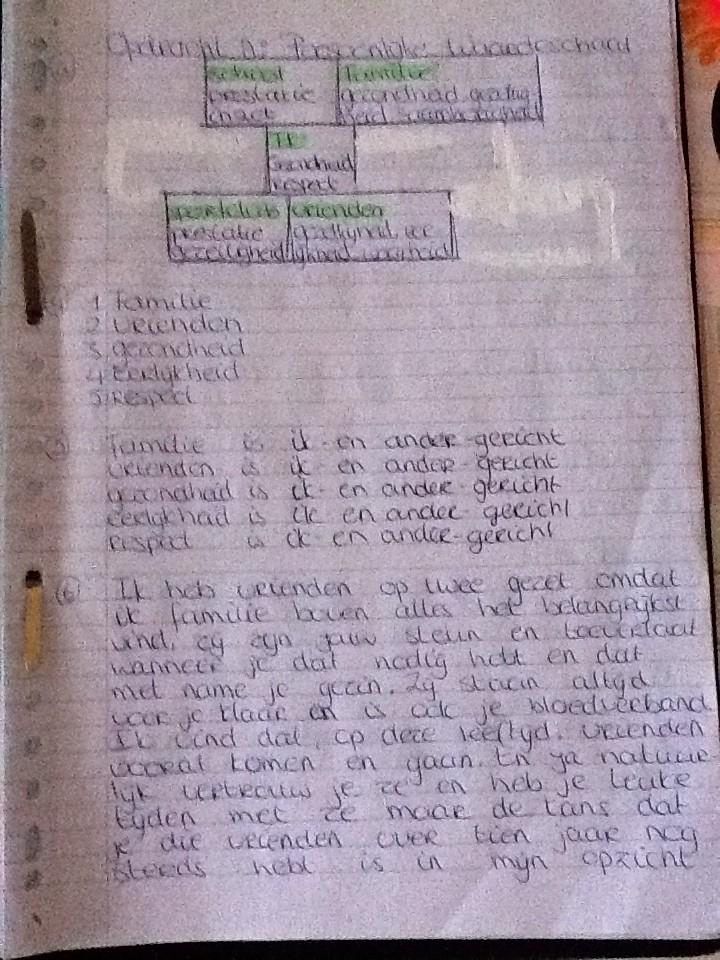 Opdracht 1: Persoonlijke Waardeschaal
school familie
prestatie gezondheid
inzet
Ik
Gezondheid
respect
sportclub vrienden
prestatie
gezelligheid
1 familie
2 vrienden
3 gezondheid
4 eerlijkheid
5 Respect
5 familie is ik- en ander-gericht
vrienden is ik- en ander-gericht
gezondheid is ik- en ander-gericht
eerlijkheid is ik en ander-gericht
respect is ik- en ander-gericht
6 Ik heb vrienden op twee gezet omdat
ik familie boven alles het belangrijkst
vind. zij zijn jouw steun en toeverlaat
wanneer je dat nodig hebt en dat
met name je gezin. Zij staan altijd
voor je klaar en is ook je bloedverband
Ik vind dat, op deze leeftijd, vrienden
vooral komen en gaan. En ja natuur-
lijk vertrouw je ze en heb je leuke
tijden met ze maar de kans dat
je die vrienden over tien jaar nog
steeds hebt is in mijn opzicht